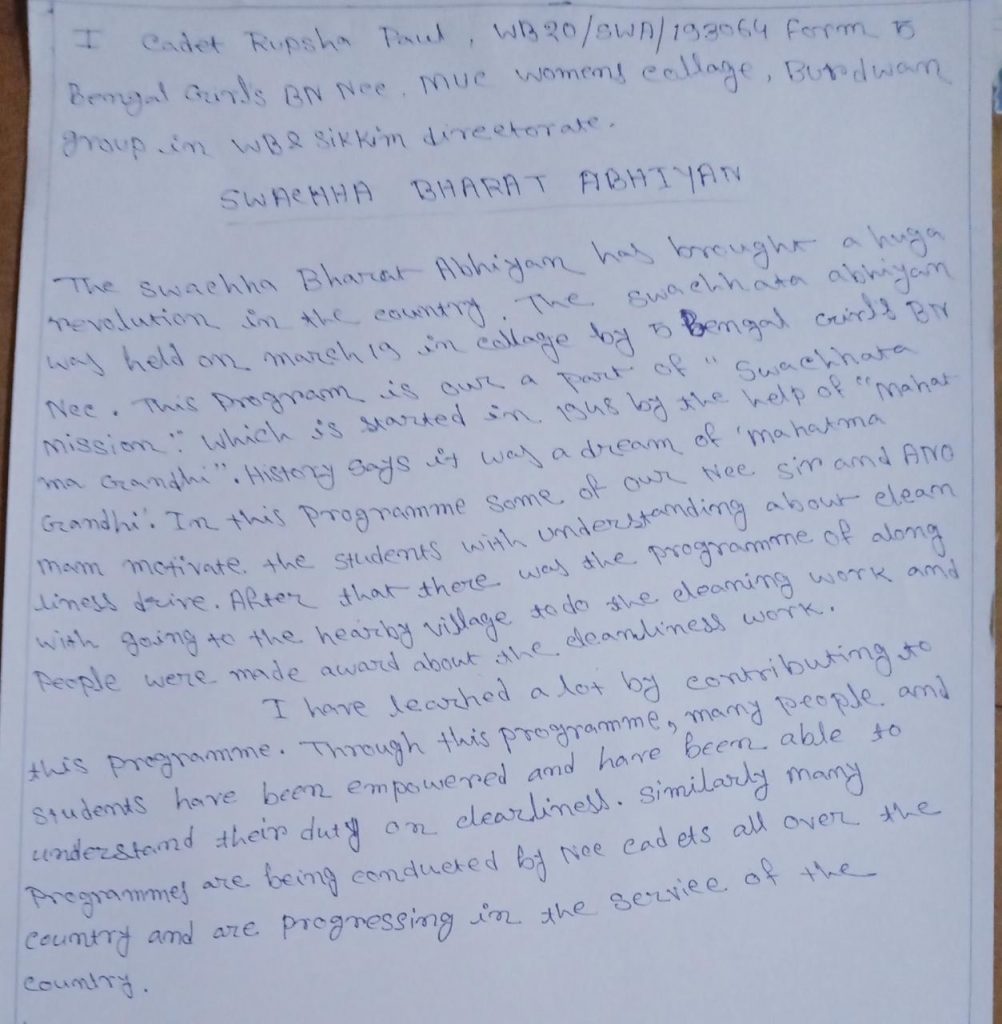 I Cadet Rupsha Paul, WB20/SWA/193064 Form 5
Bengal Girls BN Ncc, MUC womens collage, Burdwan
group in WB & Sikkim directorate.
SWACHHA BHARAT ABHIYAN
The swachha Bharat Abhiyan has brought a huga
revolution in the country. The swachhata abhiyan
was held on march 19 in collage by 5 Bengal Girls BN
Ncc. This program is our a part of "Swachhata
mission". Which is started in 1948 by the help of "mahat
ma Gandhi". History says it was a dream of 'mahatma
Gandhi'. In this programme some of our Ncc sir and ANO
mam motivate the students with understanding about clean
liness drive. After that there was the programme of along
with going to the nearby village to do the cleaning work and
People were made award about the cleanliness work.
I have learned a lot by contributing to
this programme. Through this programme, many people and
students have been empowered and have been able to
understand their duty on clearliness. similarly many
Programmes are being conducted by Ncc cadets all over the
country and are progressing in the service of the
country.